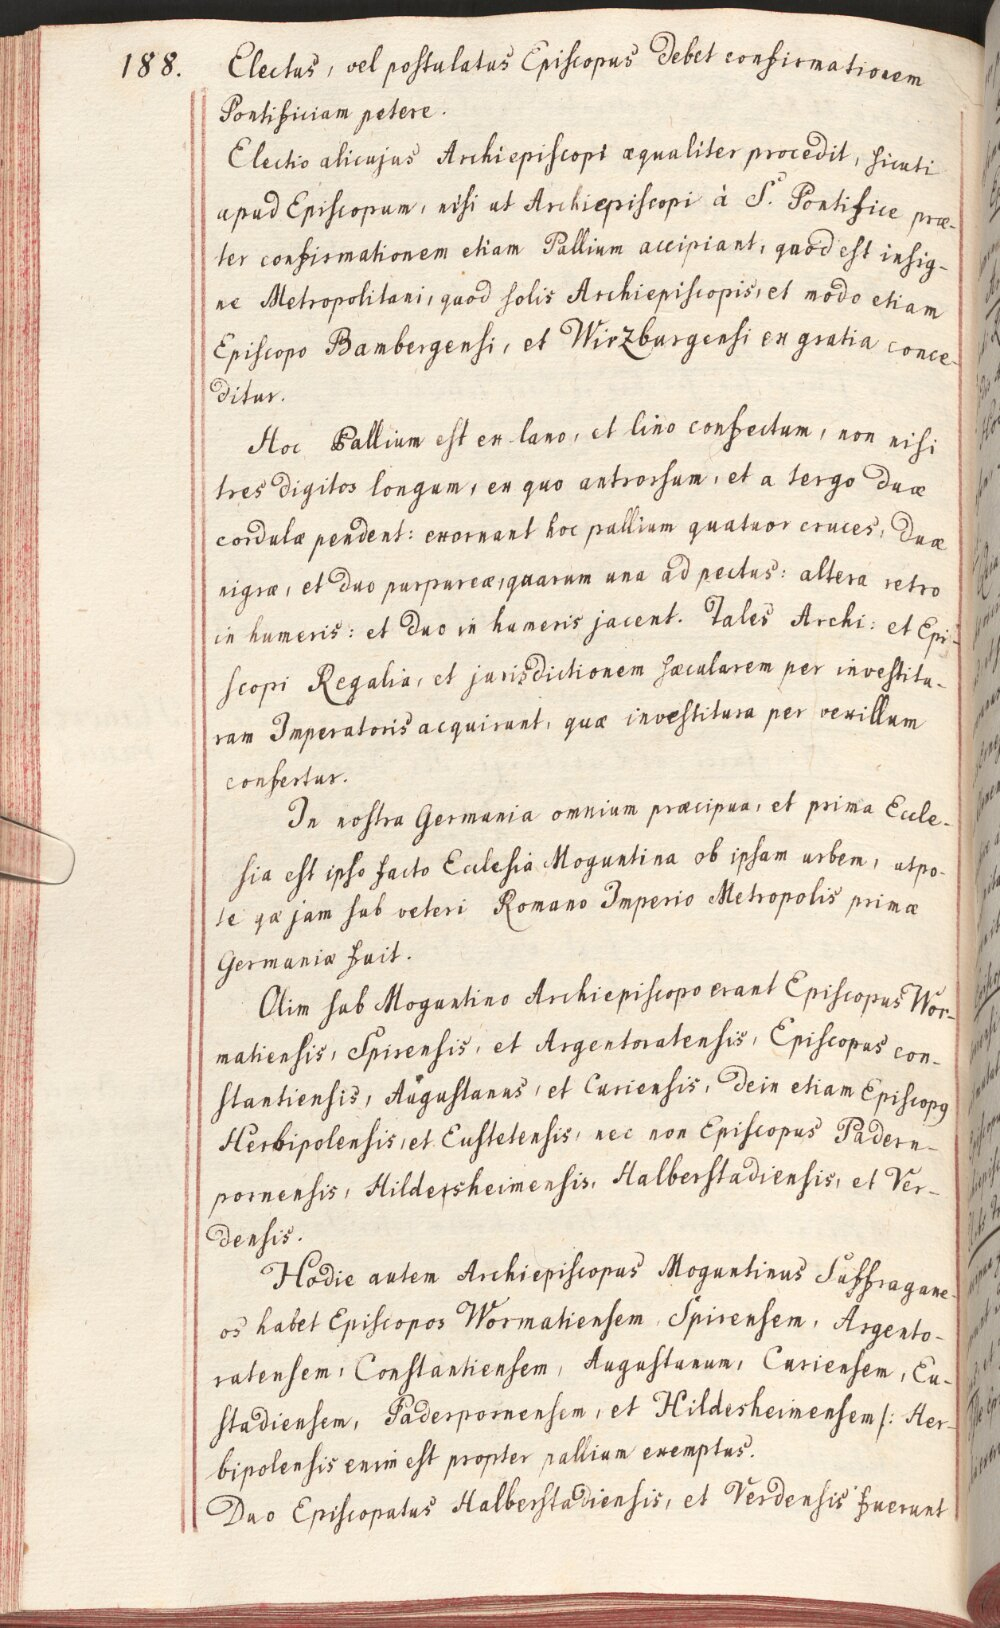 188. Electus, vel postulatus Episcopus debet confirmationem
Pontificiam petere.
Electio alicujus Archiepiscopi æqualiter procedit, sicuti
apud Episcopum, nisi ut Archiepiscopi à S.^c Pontifice præ-
ter confirmationem etiam Pallium accipiant, quod est insig-
ne Metropolitani, quod solis Archiepiscopis, et modo etiam
Episcopo Bambergensi, et Wirzburgensi ex gratia conce-
ditur.
Hoc Pallium est ex lano, et lino confectum, non nisi
tres digitos longum, ex quo antrorsum, et a tergo duæ
cordulæ pendent: exornant hoc pallium quatuor cruces, duæ
nigræ, et duo purpureæ, quarum una ad pectus: altera retro
in humeris: et duo in humeris jacent. Tales Archi: et Epi-
scopi Regalia, et jurisdictionem sæcularem per investitu-
ram Imperatoris acquirunt, quæ investitura per vexillum
confertur.
In nostra Germania omnium præcipua, et prima Eccle-
sia est ipso facto Ecclesia Moguntina ob ipsam urbem, utpo-
te qæ jam sub veteri Romano Imperio Metropolis primæ
Germaniæ fuit.
Olim sub Moguntino Archiepiscopo erant Episcopus Wor-
matiensis, Spirensis, et Argentoratensis, Episcopus con-
stantiensis, Augustanus, et Curiensis, dein etiam Episcopq
Herbipolensis, et Eustetensis, nec non Episcopus Padern-
pornensis, Hildersheimensis, Halberstadiensis, et Ver-
densis.
Hodie autem Archiepiscopus Moguntinus Suffragane-
os habet Episcopos Wormatiensem, Spirensem, Argento-
ratensem, Constantiensem, Augustanum, Curiensem, Eu-
stadiensem, Paderpornensem, et Hildesheimensem /: Her-
bipolensis enim est propter pallium exemptus.
Duo Episcopatus Halberstadiensis, et Verdensis fuerunt